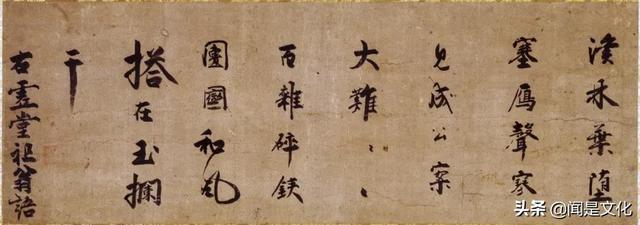 溪林葉堕
塞鴈聲寒
見成公案
大難〻〻
百雜碎鉄
團圝和風
搭在玉欄
干
右虚堂祖翁語
头条 @闻是文化